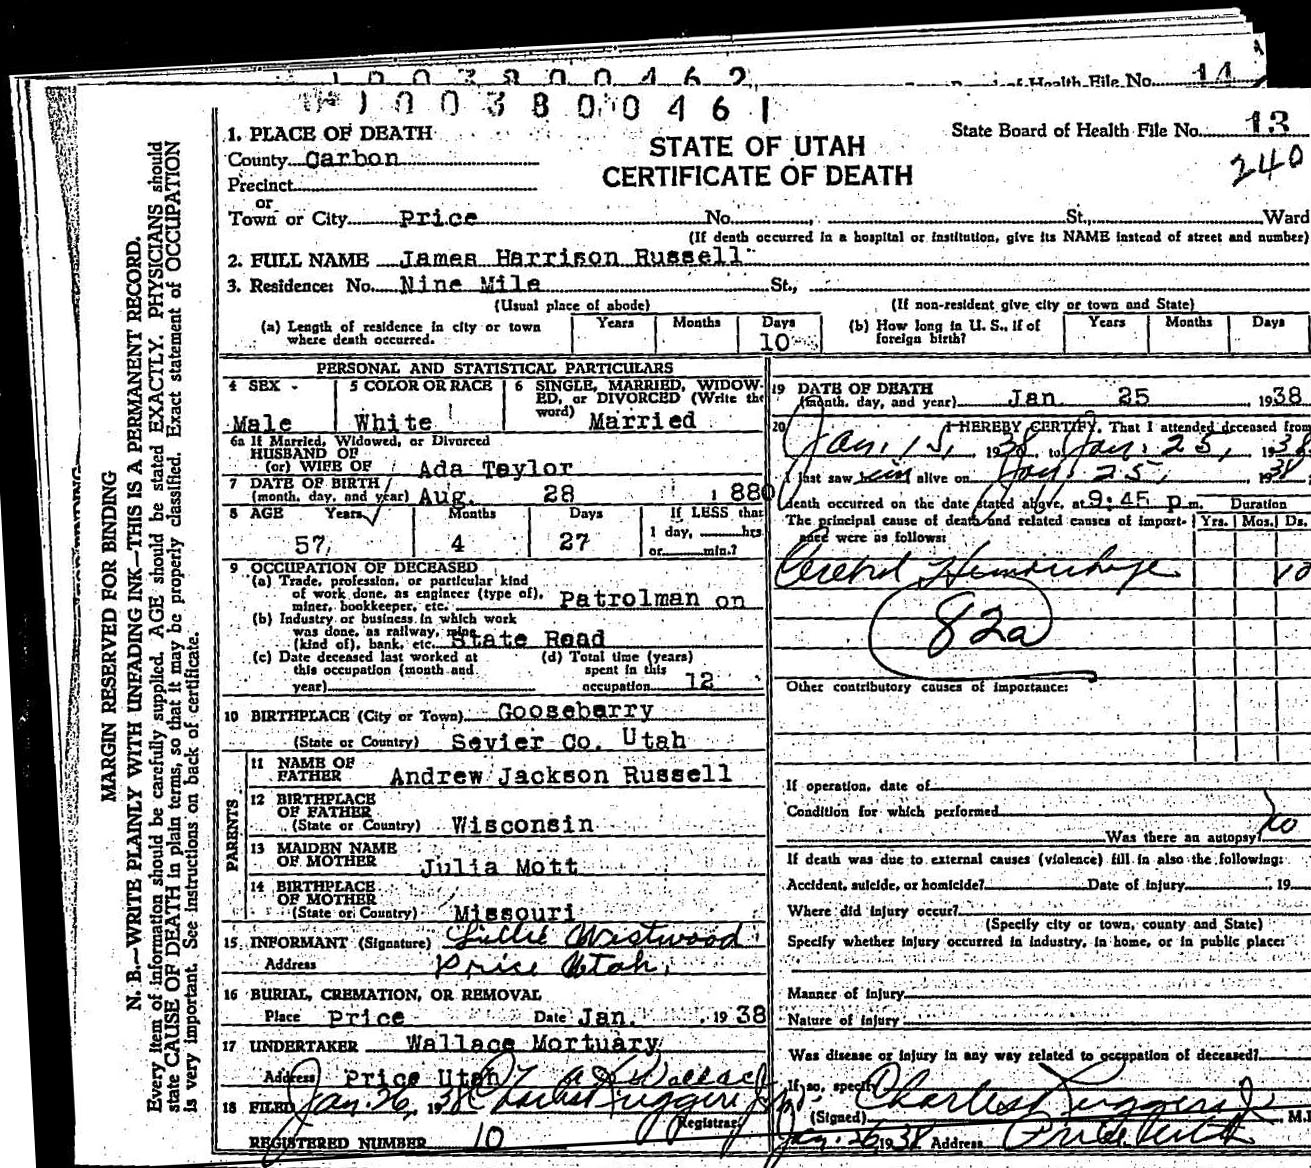 Board of Health File No. 14
1003800462
1003800461
State Board of Health File No. 13
240
STATE OF UTAH
CERTIFICATE OF DEATH
1. PLACE OF DEATH
County Carbon
Precinct
or
Town or City Price No. St., Ward
(If death occurred in a hospital or institution, give its NAME instead of street and number)
2. FULL NAME James Harrison Russell
3. Residence: No. Nine Mile St.,
(Usual place of abode) (If non-resident give city or town and State)
(a) Length of residence in city or town where death occurred. Years Months Days 10
(b) How long in U. S., if of foreign birth? Years Months Days
PERSONAL AND STATISTICAL PARTICULARS
4 SEX Male
5 COLOR OR RACE White
6 SINGLE, MARRIED, WIDOWED, or DIVORCED (Write the word) Married
6a If Married, Widowed, or Divorced
HUSBAND OF
(or) WIFE OF Ada Taylor
7 DATE OF BIRTH
(month, day, and year) Aug. 28 1880
8 AGE Years 57 Months 4 Days 27 If LESS than 1 day, hrs or min.?
9 OCCUPATION OF DECEASED
(a) Trade, profession, or particular kind
of work done, as engineer (type of),
miner, bookkeeper, etc. Patrolman on
(b) Industry or business in which work
was done, as railway, mine
(kind of), bank, etc. State Road
(c) Date deceased last worked at
this occupation (month and
year)
(d) Total time (years)
spent in this
occupation 12
10 BIRTHPLACE (City or Town) Gooseberry
(State or Country) Sevier Co. Utah
PARENTS
11 NAME OF
FATHER Andrew Jackson Russell
12 BIRTHPLACE
OF FATHER
(State or Country) Wisconsin
13 MAIDEN NAME
OF MOTHER Julia Mott
14 BIRTHPLACE
OF MOTHER
(State or Country) Missouri
15. INFORMANT (Signature) Lillie Westwood
Address Price Utah,
16 BURIAL, CREMATION, OR REMOVAL
Place Price Date Jan. 1938
17 UNDERTAKER Wallace Mortuary
Address Price Utah Wallace
18 FILED Jan. 26, 1938 Charles Ruggeri Jr
Registrar
REGISTERED NUMBER 10
19 DATE OF DEATH
(month, day, and year) Jan 25 1938
20 I HEREBY CERTIFY, That I attended deceased from
Jan. 15, 1938 to Jan. 25, 1938
I last saw him alive on Jan. 25, 1938
death occurred on the date stated above, at 9:45 p m. Duration
The principal cause of death and related causes of importance were as follows: Yrs. Mos. Ds.
Cerebral Hemorrhage 10
82a
Other contributory causes of importance:
If operation, date of
Condition for which performed
Was there an autopsy? No
If death was due to external causes (violence) fill in also the following:
Accident, suicide, or homicide? Date of injury 19
Where did injury occur?
(Specify city or town, county and State)
Specify whether injury occurred in industry, in home, or in public place:
Manner of injury
Nature of injury
Was disease or injury in any way related to occupation of deceased?
If so, specify
(Signed) Charles Ruggeri Jr M.
Jan. 26 1938 Address Price Utah
MARGIN RESERVED FOR BINDING
N. B.—WRITE PLAINLY WITH UNFADING INK—THIS IS A PERMANENT RECORD.
Every item of information should be carefully supplied. AGE should be stated EXACTLY. PHYSICIANS should
state CAUSE OF DEATH in plain terms, so that it may be properly classified. Exact statement of OCCUPATION
is very important. See instructions on back of certificate.